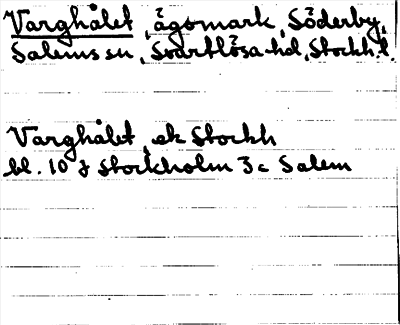 Varghålet, ägomark, Söderby,
Salems sn, Svartlösa hd, Stockh. l.
Varghålet ek Stockh
bl. 10 J Stockholm 3c Salem